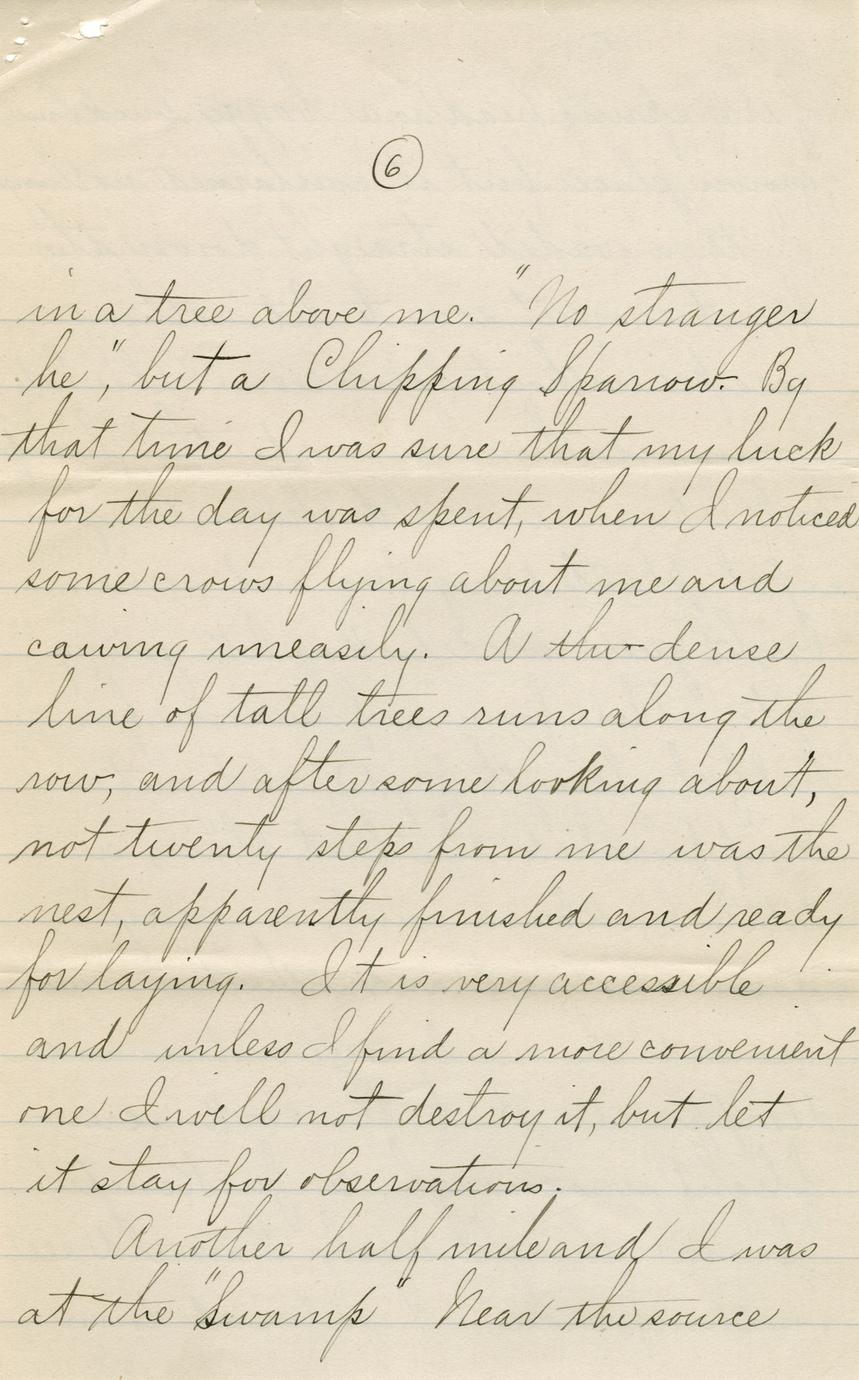 6
in a tree above me. "No stranger
he", but a Chipping Sparrow. By
that time I was sure that my luck
for the day was spent, when I noticed
some crows flying about me and
cawing uneasily. A the dense
line of tall trees runs along the
row, and after some looking about,
not twenty steps from me was the
nest, apparently finished and ready
for laying. It is very accessible
and unless I find a more convenient
one I will not destroy it, but let
it stay for observations.
Another half mile and I was
at the "Swamp" Near the source